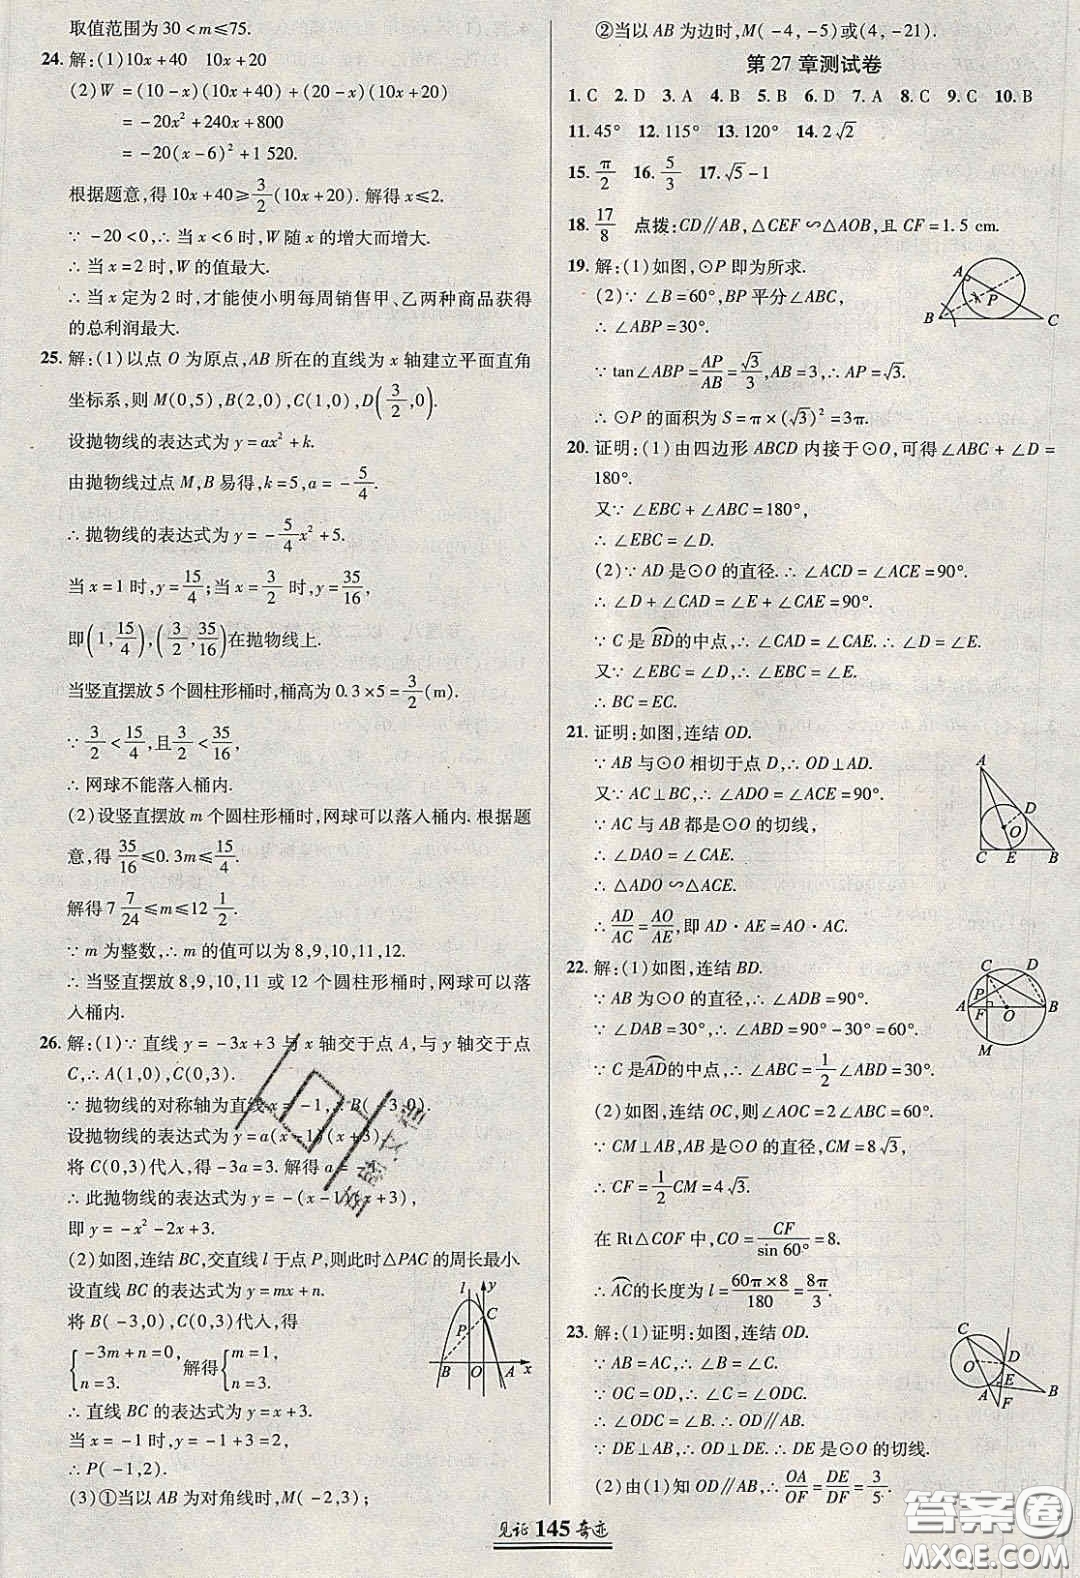 取值范围为 30<m≤75.
24. 解:(1)10x+40　10x+20
(2)W=(10-x)(10x+40)+(20-x)(10x+20)
=-20x²+240x+800
=-20(x-6)²+1 520.
根据题意,得 10x+40≥3/2(10x+20). 解得 x≤2.
∵ -20<0,∴ 当 x<6 时,W 随 x 的增大而增大.
∴ 当 x=2 时,W 的值最大.
∴ 当 x 定为 2 时,才能使小明每周销售甲、乙两种商品获得
的总利润最大.
25. 解:(1)以点 O 为原点,AB 所在的直线为 x 轴建立平面直角
坐标系,则 M(0,5),B(2,0),C(1,0),D(3/2,0).
设抛物线的表达式为 y=ax²+k.
由抛物线过点 M,B 易得,k=5,a=-5/4.
∴ 抛物线的表达式为 y=-5/4x²+5.
当 x=1 时,y=15/4;当 x=3/2 时,y=35/16,
即(1,15/4),(3/2,35/16)在抛物线上.
当竖直摆放 5 个圆柱形桶时,桶高为 0.3×5=3/2(m).
∵ 3/2<15/4,且3/2<35/16,
∴ 网球不能落入桶内.
(2)设竖直摆放 m 个圆柱形桶时,网球可以落入桶内. 根据题
意,得 35/16≤0.3m≤15/4.
解得 7 7/24≤m≤12 1/2.
∵ m 为整数,∴ m 的值可以为 8,9,10,11,12.
∴ 当竖直摆放 8,9,10,11 或 12 个圆柱形桶时,网球可以落
入桶内.
26. 解:(1)∵ 直线 y=-3x+3 与 x 轴交于点 A,与 y 轴交于点
C,∴ A(1,0),C(0,3).
∵ 抛物线的对称轴为直线 x=-1,∴ B(-3,0).
设抛物线的表达式为 y=a(x-1)(x+3),
将 C(0,3)代入,得 -3a=3. 解得 a=-1.
∴ 此抛物线的表达式为 y=-(x-1)(x+3),
即 y=-x²-2x+3.
(2)如图,连结 BC,交直线 l 于点 P,则此时△PAC 的周长最小.
设直线 BC 的表达式为 y=mx+n.
将 B(-3,0),C(0,3)代入,得
{-3m+n=0, n=3. 解得 {m=1, n=3.
∴ 直线 BC 的表达式为 y=x+3.
当 x=-1 时,y=2,
∴ P(-1,2).
(3)①当以 AB 为对角线时,M(-2,3);
l y C P B O A x
②当以 AB 为边时,M(-4,-5)或(4,-21).
第 27 章测试卷
1. C 2. D 3. A 4. B 5. B 6. D 7. A 8. C 9. C 10. B
11. 45° 12. 115° 13. 120° 14. 2√2
15. π/2 16. 5/3 17. √5-1
18. 17/8　点拨:CD∥AB,△CEF∽△AOB,且 CF=1.5 cm.
19. 解:(1)如图,⊙P 即为所求.
(2)∵ ∠B=60°,BP 平分∠ABC,
∴ ∠ABP=30°.
∵ tan∠ABP=AP/AB=√3/3,AB=3,∴ AP=√3.
∴ ⊙P 的面积为 S=π×(√3)²=3π.
A P B C
20. 证明:(1)由四边形 ABCD 内接于⊙O,可得∠ABC+∠D=
180°.
又∵ ∠EBC+∠ABC=180°,
∴ ∠EBC=∠D.
(2)∵ AD 是⊙O 的直径.∴ ∠ACD=∠ACE=90°.
∴ ∠D+∠CAD=∠E+∠CAE=90°.
∵ C 是 BD⌒的中点,∴ ∠CAD=∠CAE.∴ ∠D=∠E.
又∵ ∠EBC=∠D,∴ ∠EBC=∠E.
∴ BC=EC.
21. 证明:如图,连结 OD.
∵ AB 与⊙O 相切于点 D,∴ OD⊥AD.
又∵ AC⊥BC,∴ ∠ADO=∠ACE=90°.
∵ AC 与 AB 都是⊙O 的切线,
∴ ∠DAO=∠CAE.
∴ △ADO∽△ACE.
∴ AD/AC=AO/AE,即 AD·AE=AO·AC.
A D O C E B
22. 解:(1)如图,连结 BD.
∵ AB 为⊙O 的直径,∴ ∠ADB=90°.
∵ ∠DAB=30°,∴ ∠ABD=90°-30°=60°.
∵ C 是AD⌒的中点,∴ ∠ABC=1/2∠ABD=30°.
(2)如图,连结 OC,则∠AOC=2∠ABC=60°.
∵ CM⊥AB,AB 是⊙O 的直径,CM=8√3,
∴ CF=1/2CM=4√3.
在 Rt△COF 中,CO=CF/sin 60°=8.
∴ AC⌒的长度为 l=60π×8/180=8π/3.
C D P A F O B M
23. 解:(1)证明:如图,连结 OD.
∵ AB=AC,∴ ∠B=∠C.
∵ OC=OD,∴ ∠C=∠ODC.
∴ ∠ODC=∠B.∴ OD∥AB.
∵ DE⊥AB,∴ OD⊥DE.∴ DE 是⊙O 的切线.
(2)由(1)知 OD∥AB,∴ OA/OF=DE/DF=3/5.
C O D E A B F
见证 145 奇迹
答案圈
MXQE.COM